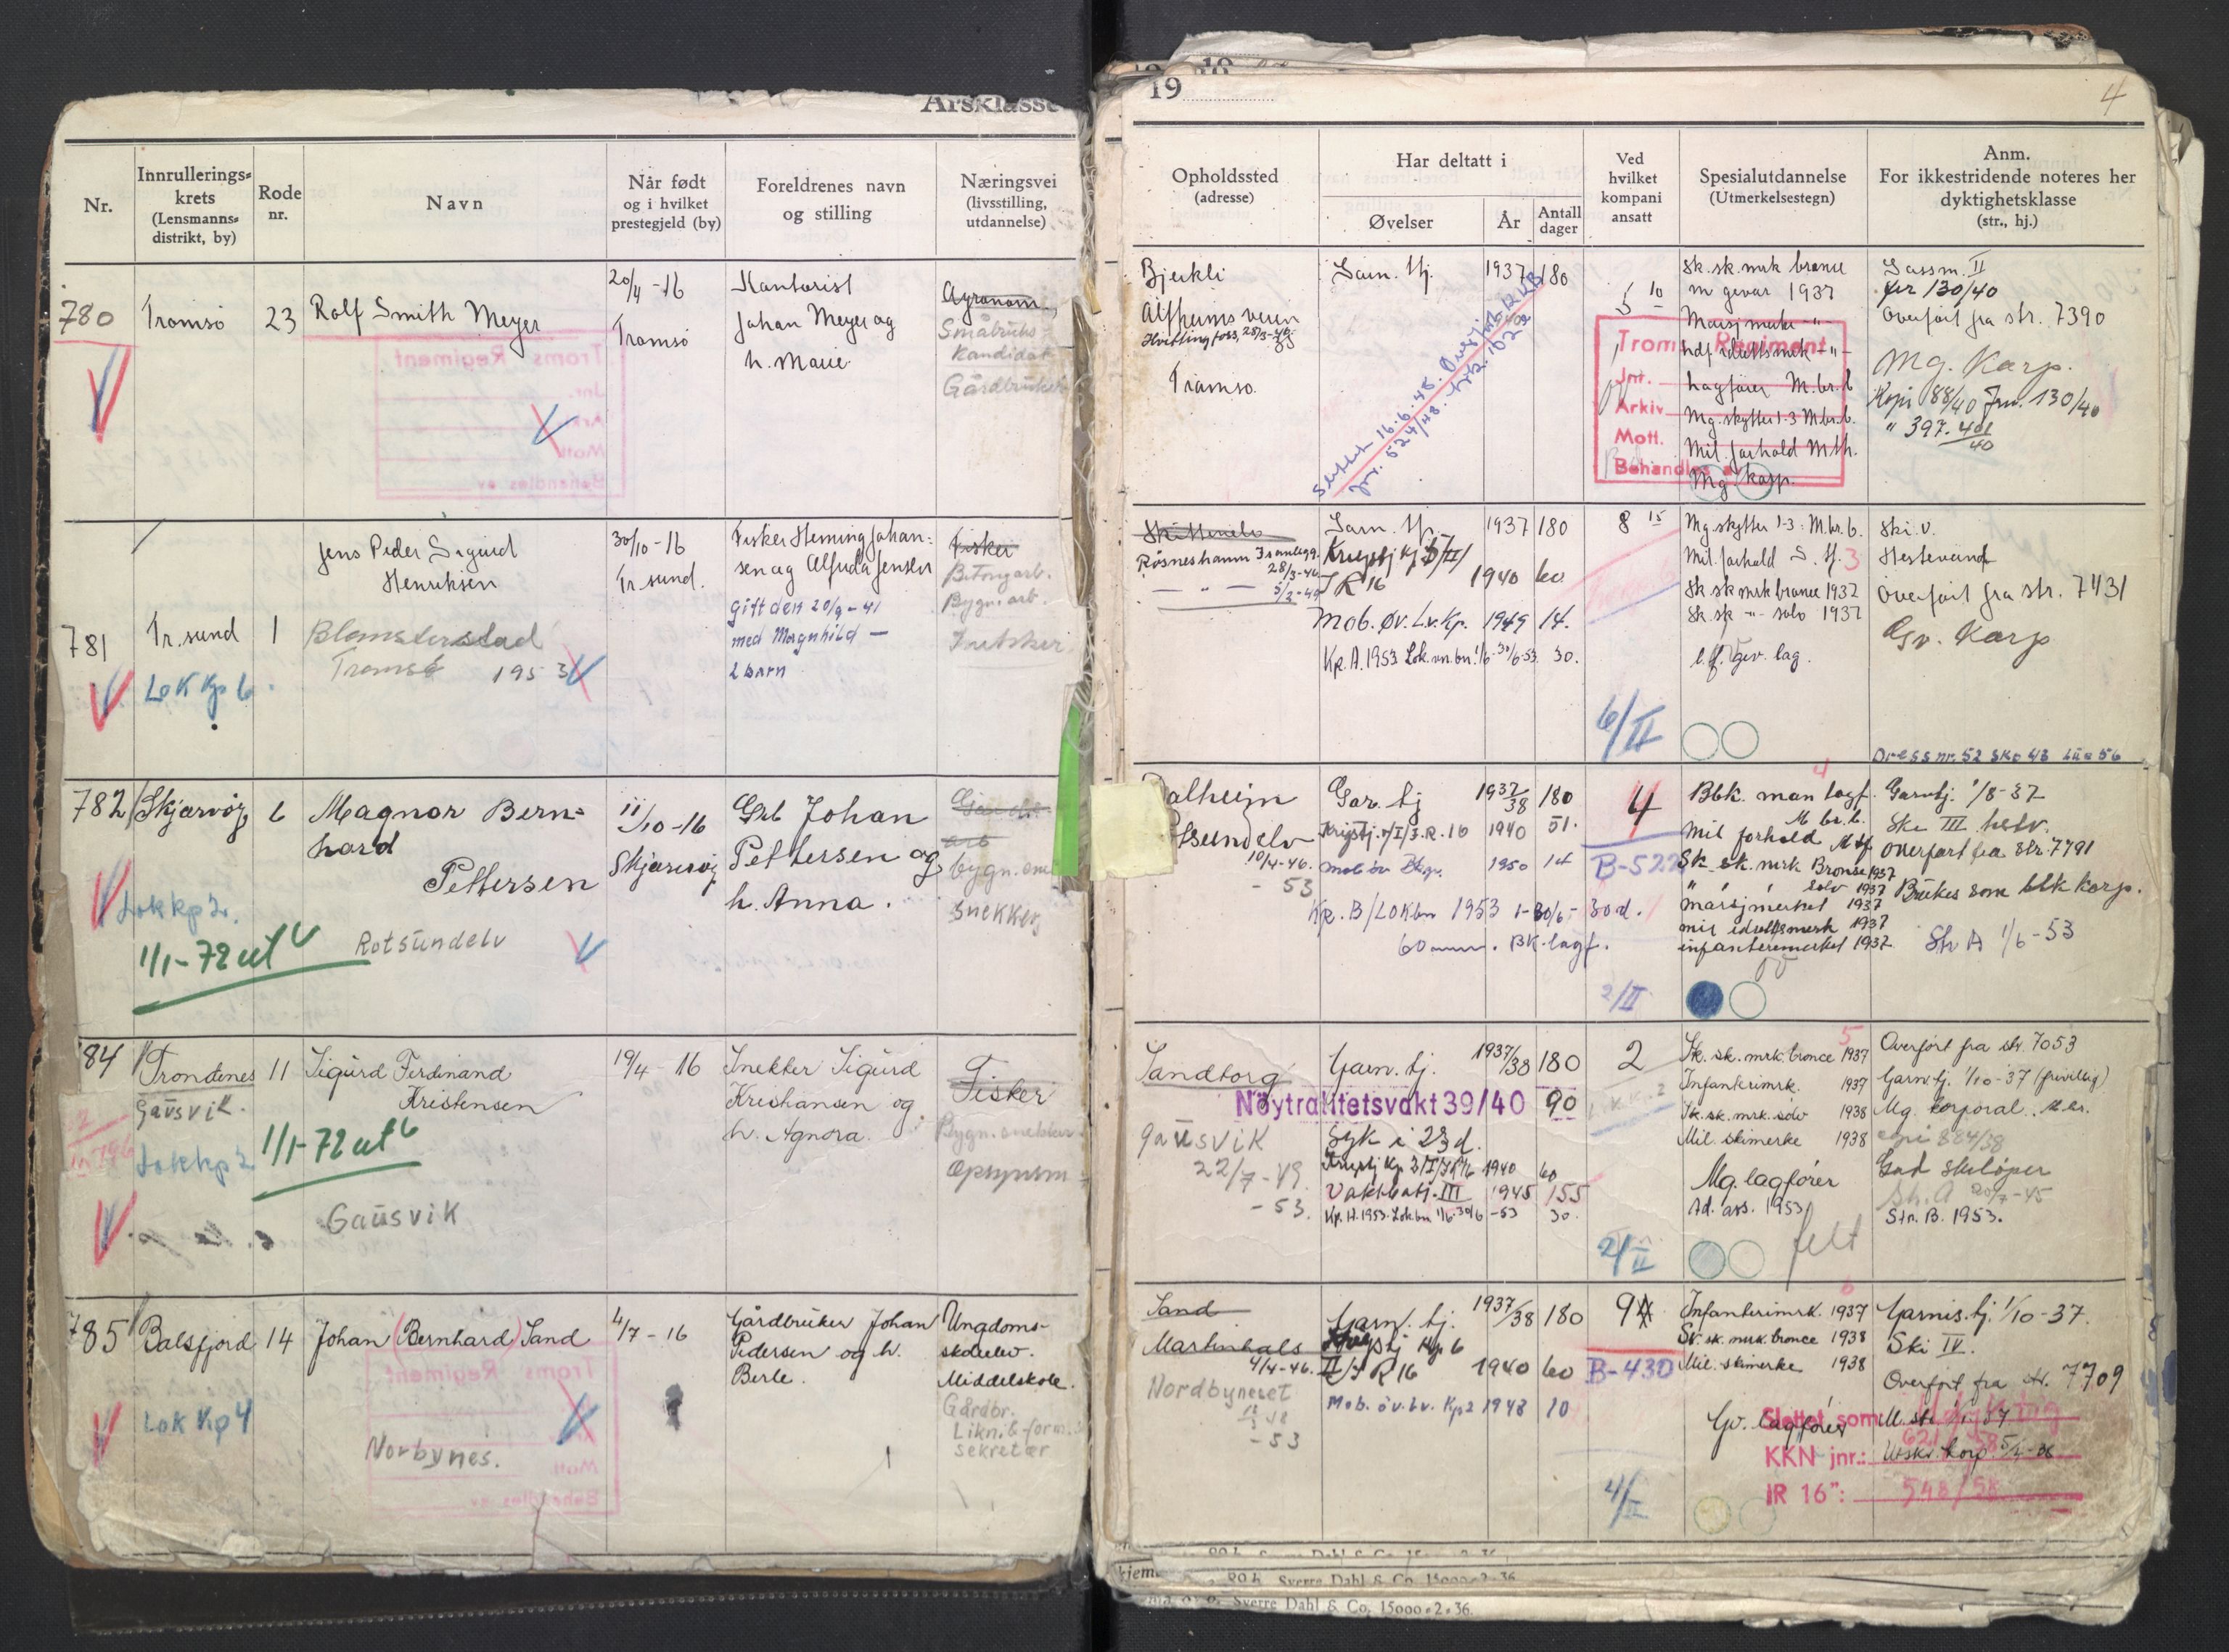 Årsklasse
19
4
Nr.
Innrullerings-
krets
(Lensmanns-
distrikt, by)
Rode
nr.
Navn
Når født
og i hvilket
prestegjeld (by)
Foreldrenes navn
og stilling
Næringsvei
(livsstilling,
utdannelse)
Opholdssted
(adresse)
Har deltatt i
Øvelser
År
Antall
dager
Ved
hvilket
kompani
ansatt
Spesialutdannelse
(Utmerkelsestegn)
Anm.
For ikkestridende noteres her
dyktighetsklasse
(str., hj.)
780
Tromsø
23
Rolf Smith Meyer
20/4 -16
Tromsø
Kontorist
Johan Meyer og
h. Marie
Agronom,
Småbruks-
kandidat
Gårdbruker
Bjerkli
Alfheimsveien
Tromsø.
1937
180
Slettet 16.6.48.
jnr. 524/48.
5 10
Sk. sk. mrk bronce
m gevær 1937
Marsjmerke -"-
Lagfører M.br.b
Mg. skytter 1-3 M.br.b.
Mil. forhold M.th.
Mg. Korp.
Troms Regiment
Jnr.
Arkiv
Mott.
Behandles av
jnr 130/40
Overført fra str. 7390
Mg. Korp.
Kopi 88/40 Jnr. 130/40
" 397. 401/40
781
Tr.sund
1
Lok Kp 6.
Jens Peder Sigurd
Henriksen
Blomsterstad
Tromsø 1953
30/10 -16
Tr.sund.
Fisker Heming Johan-
sen og Alfrida Jensen
Gift den 20/9 - 41
med Magnhild —
2 barn
Fisker
Betongarb.
Bygn.arb.
Røsneshamn
28/3-46
1937 180
Krigstj Kp 5/II/
IR 16 1940 60
Mob. øv. Lv. Kp. 1949 14.
Kp. A. 1953 Lok.vn.bn. 1/6-30/6-53 30.
8 15
6/II
Mg skytter 1-3: M.br.b.
Mil. forhold S. tf. 3
Sk sk mrk bronce 1937
Sk. sk -"- sølv 1937
Gev. lag.
Ski V.
Hestevand
Overført fra str. 7431
Gv. Korp
Dress nr. 52 Sko 43 Lue 56
782
Skjervøy
6
Lok kp 2.
1/1-72 ut
Magnar Bern-
hard
Pettersen
Rotsundelv
11/10 -16
Skjervøy
Grb Johan
Pettersen og
h. Anna.
arb
bygn.
snekker
Dalheim
10/4-46.
- 53
Gar. tj 1937/38 180
Krigstj. 1940 51.
1950 14
Kp. B/LOKbn 1953 1-30/6- 30d.
60 mm. BK-lagf.
4
B-522
2/II
4
Bbk. man lagf.
M br. b.
Mil forhold Mtf
Sk. sk. mrk Bronse 1937
" " " Sølv 1937
Marsjmerket 1937
mil idrettsmerk 1937
infanterimerket 1937
Garntj. 1/8-37
Ski III
Overført fra Str. 7791
Brukes som bbk korp.
Str A 1/6-53
84
Trondenes
Gausvik.
Lokkp 2
11
Sigurd Ferdinand
Kristensen
1/1-72 ut
Gausvik
19/4 - 16
Snekker Sigurd
Kristiansen og
h. Agnora.
Fisker
Bygn.snekker
Oppsynsm
Sandtorg
Gausvik
22/7-49.
- 53.
Garn. tj. 1937/38 180
Nøytralitetsvakt 39/40 90
Syk i 23 d.
1940 60
Vaktbatj. III 1945 155
Kp. H. 1953. Lok.bn 1/6-30/6 -53 30.
2
2/II
5
Sk. sk. mrk bronce 1937
Infanterimrk. 1937
Sk. sk. mrk. sølv 1938
Mil. skimerke 1938
Mg. lagfører
Ad. ass. 1953
felt
Overført fra str. 7053
Garn.tj. 1/10-37 (frivillig)
Mg. korporal.
Kopi 884/38
God skiløper
Str. A 20/7-45
Str. B. 1953.
785
Balsfjord
14
Lok Kp 4
Johan (Bernhard) Sand
Norbynes.
4/7 - 16
Gårdbruker Johan
Pedersen og h.
Berle.
Ungdoms-
skoleelev.
Middelskole.
Gårdbr.
Likn.& form.
sekretær
Sand
Martinhals
4/4-46.
Nordbyneset
- 53
Garn. tj. 1937/38 180
Krigstj Kp 6
II/IR 16 1940 60
Mob. öv. Lv. Kp 2 1948 10
9
B-430
4/II
6
Infanterimrk. 1937
Sk. sk. mrk. bronce 1938
Mil. skimerke 1938
Gv. lagfører
Garnis.tj. 1/10-37.
Ski IV.
Overført fra str. 7709
Slettet som
KKN jnr.: 621/58
IR 16": 548/58
Sverre Dahl & Co. 15000.2.36
Sverre Dahl & Co. 15000.2.36.